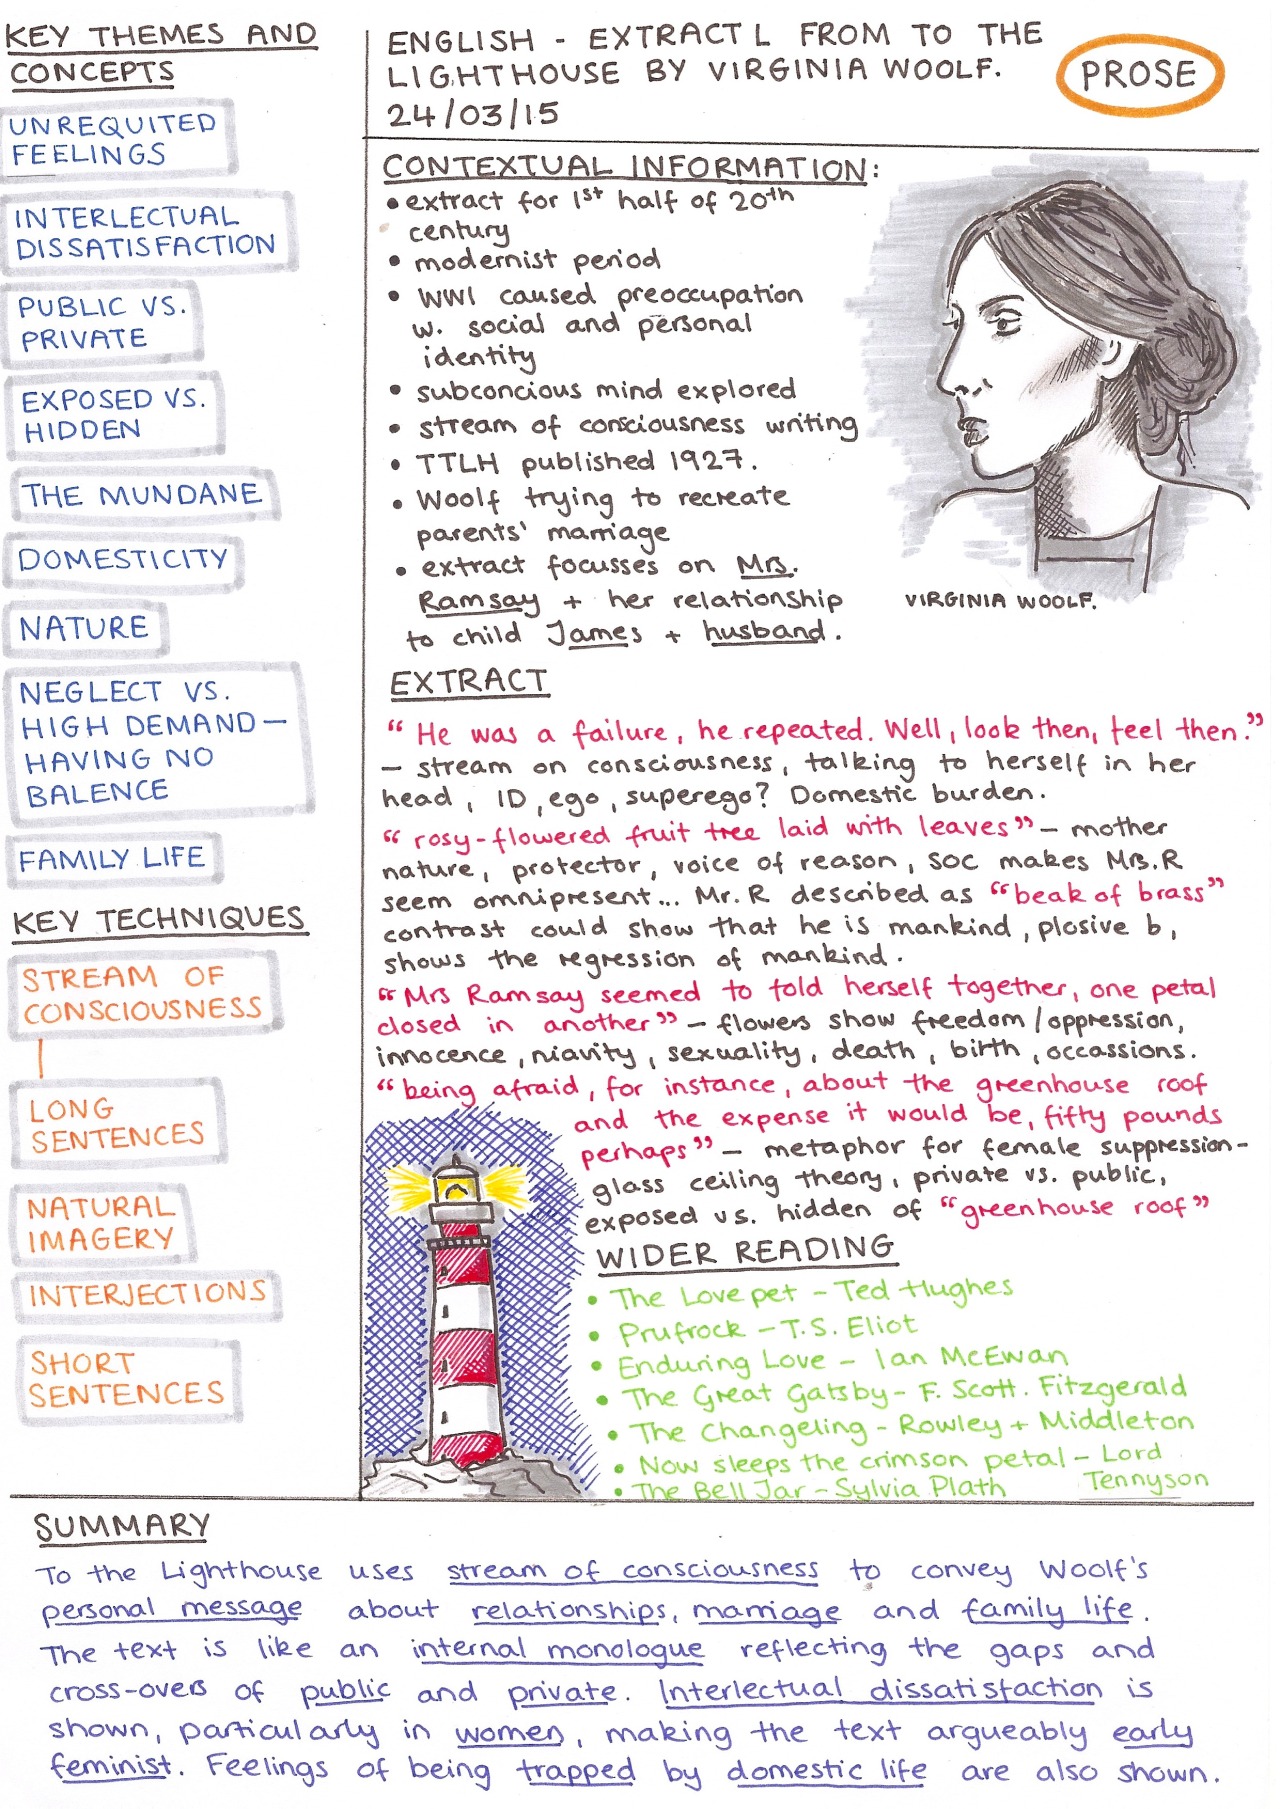 KEY THEMES AND
CONCEPTS
UNREQUITED
FEELINGS
INTERLECTUAL
DISSATISFACTION
PUBLIC VS.
PRIVATE
EXPOSED VS.
HIDDEN
THE MUNDANE
DOMESTICITY
NATURE
NEGLECT VS.
HIGH DEMAND—
HAVING NO
BALENCE
FAMILY LIFE
KEY TECHNIQUES
STREAM OF
CONSCIOUSNESS
LONG
SENTENCES
NATURAL
IMAGERY
INTERJECTIONS
SHORT
SENTENCES
ENGLISH - EXTRACT L FROM TO THE
LIGHTHOUSE BY VIRGINIA WOOLF.
24/03/15
PROSE
CONTEXTUAL INFORMATION:
• extract for 1st half of 20th
century
• modernist period
• WWI caused preoccupation
w. social and personal
identity
• subconcious mind explored
• stream of consciousness writing
• TTLH published 1927.
• Woolf trying to recreate
parents' marriage
• extract focusses on Mrs.
Ramsay + her relationship
to child James + husband.
VIRGINIA WOOLF.
EXTRACT
“ He was a failure, he repeated. Well, look then, feel then.”
— stream on consciousness, talking to herself in her
head, ID, ego, superego? Domestic burden.
“ rosy-flowered fruit tree laid with leaves” — mother
nature, protector, voice of reason, SOC makes Mrs.R
seem omnipresent... Mr.R described as “beak of brass”
contrast could show that he is mankind, plosive b,
shows the regression of mankind.
“Mrs Ramsay seemed to fold herself together, one petal
closed in another” — flowers show freedom/oppression,
innocence, niavity, sexuality, death, birth, occassions.
“being afraid, for instance, about the greenhouse roof
and the expense it would be, fifty pounds
perhaps” — metaphor for female suppression-
glass ceiling theory, private vs. public,
exposed vs. hidden of “greenhouse roof”
WIDER READING
• The Lovepet - Ted Hughes
• Prufrock - T.S. Eliot
• Enduring Love - Ian McEwan
• The Great Gatsby - F. Scott. Fitzgerald
• The Changeling - Rowley + Middleton
• Now sleeps the crimson petal - Lord
Tennyson
• The Bell Jar - Sylvia Plath
SUMMARY
To the Lighthouse uses stream of consciousness to convey Woolf's
personal message about relationships, marriage and family life.
The text is like an internal monologue reflecting the gaps and
cross-overs of public and private. Interlectual dissatisfaction is
shown, particularly in women, making the text argueably early
feminist. Feelings of being trapped by domestic life are also shown.